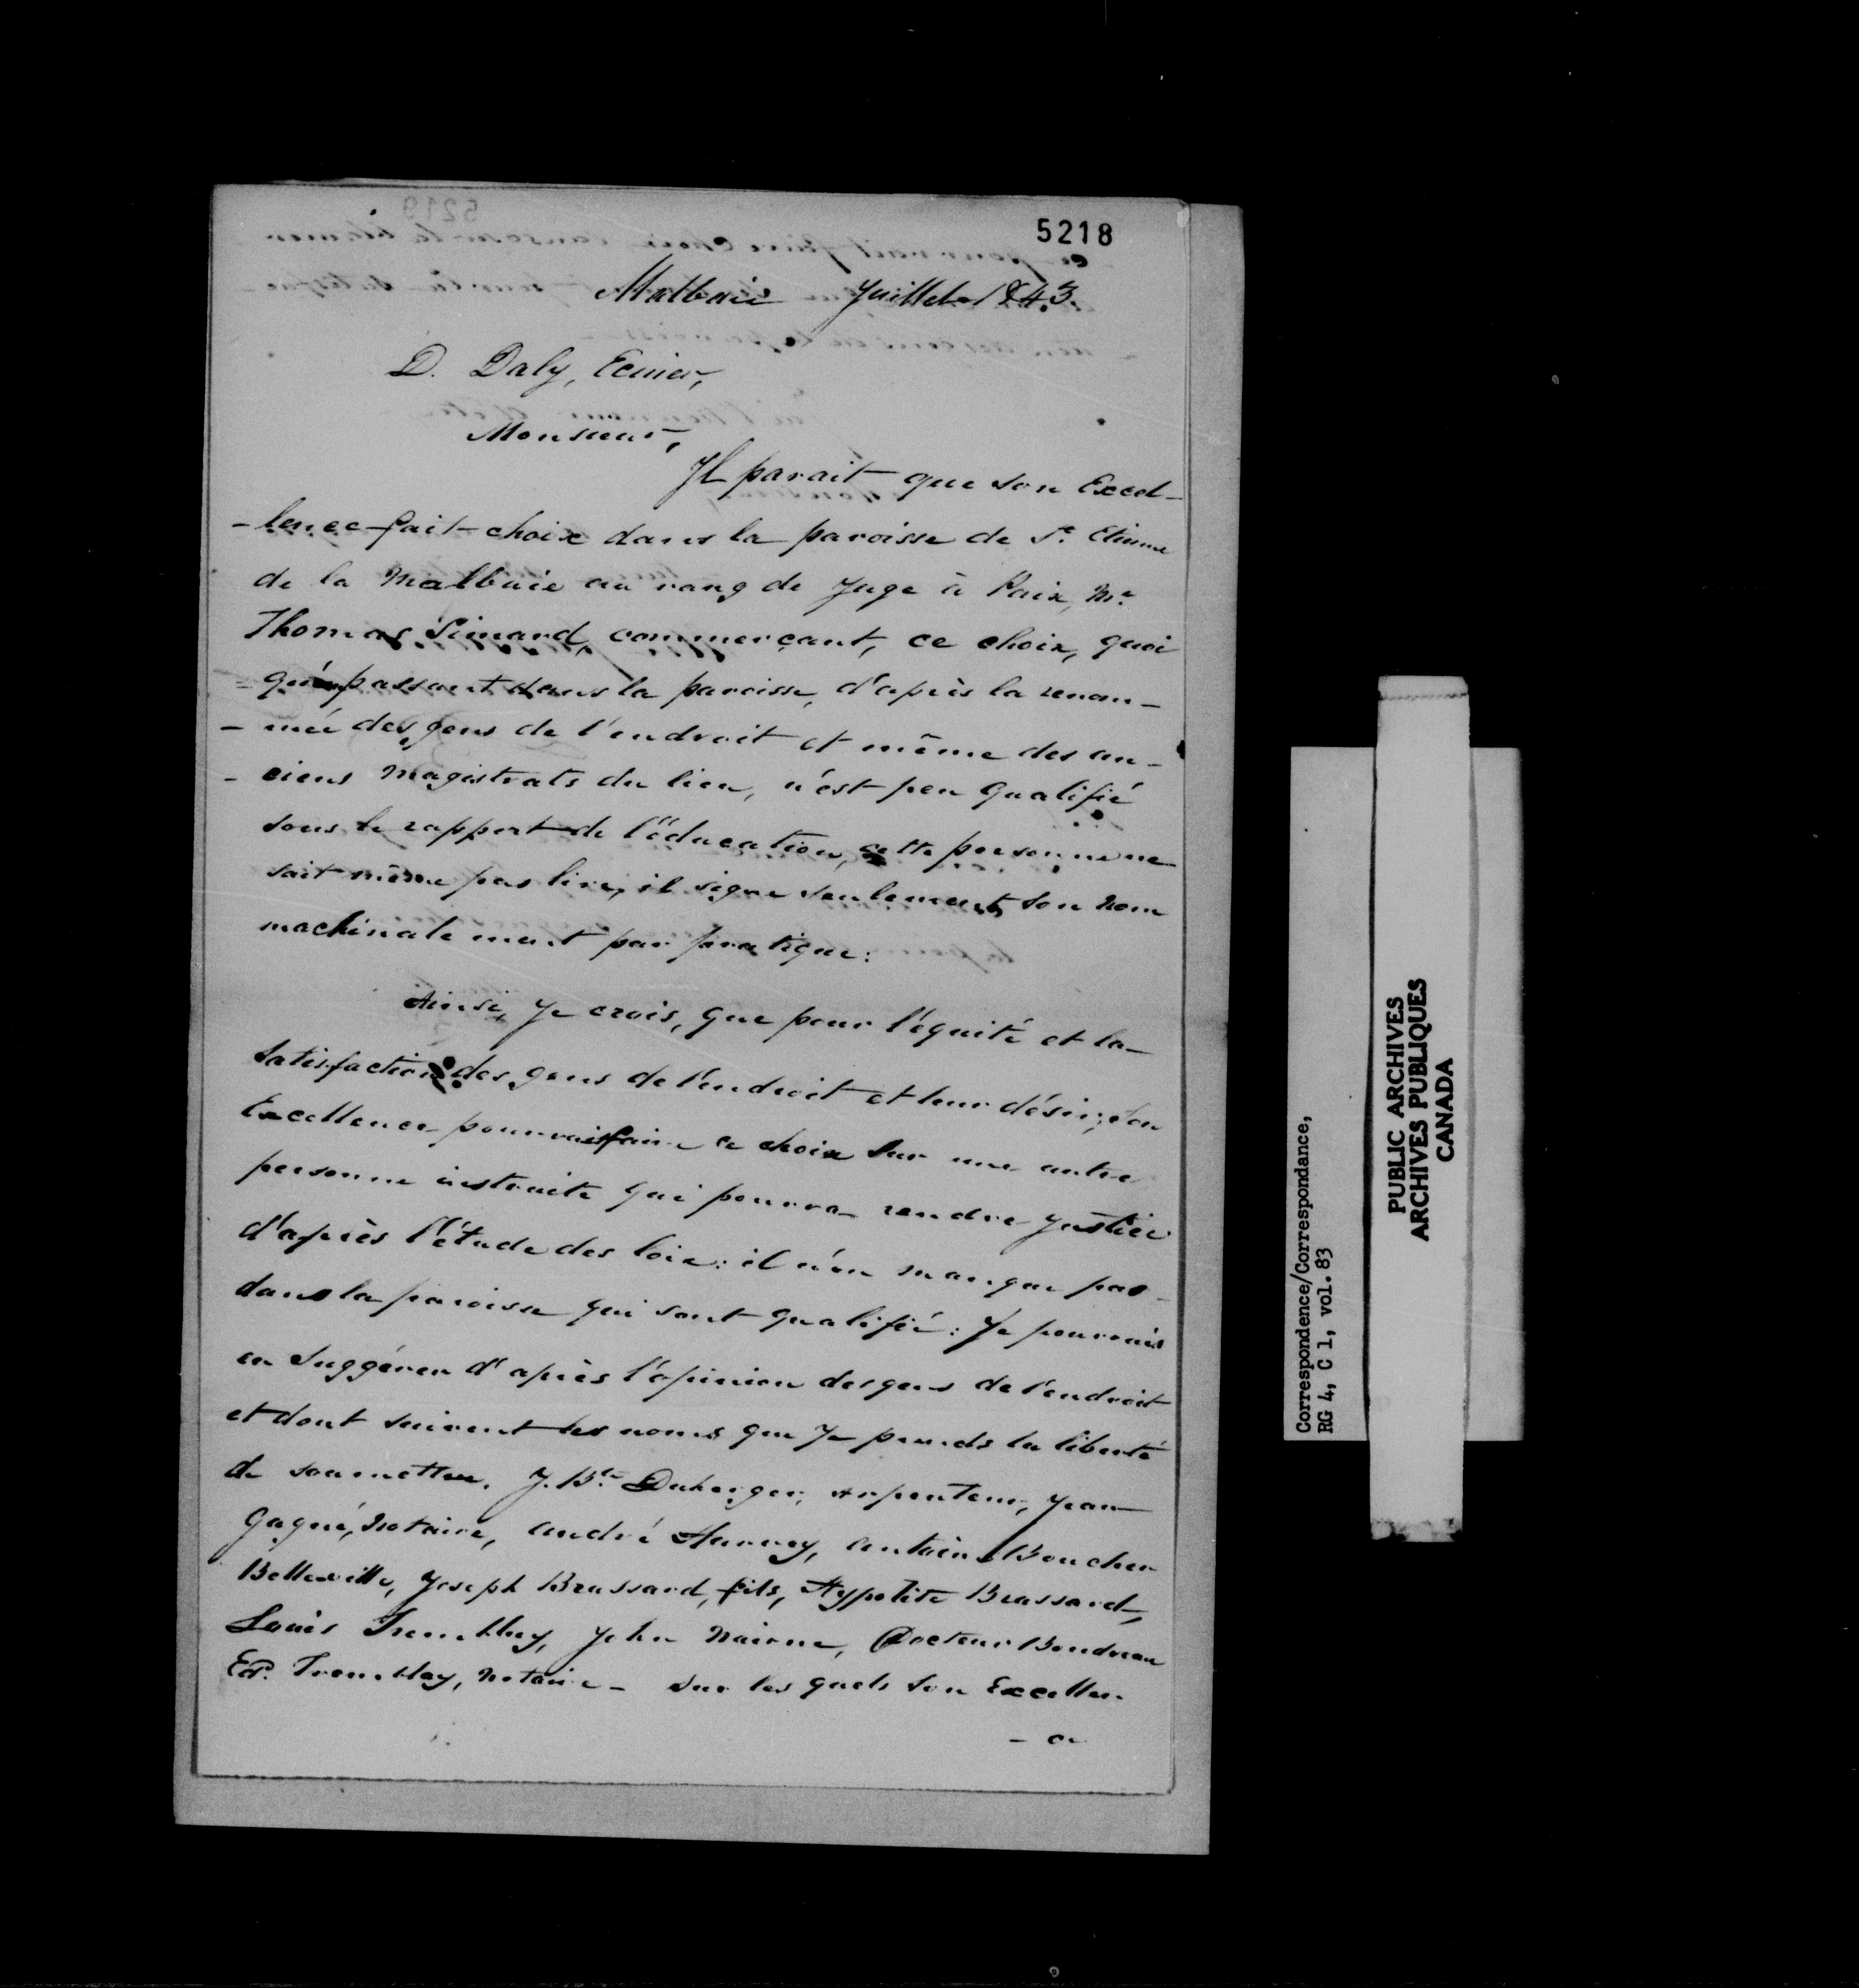 5218
Malbaie Juillet 1843.
D. Daly, Ecuier,
Monsieur,
Il parait que son Excel-
-lence fait choix dans la paroisse de St. Etienne
de la Malbaie au rang de Juge à Paix, Mr.
Thomas Simard, commerçant, ce choix, quoi
qu'en passant dans la paroisse, d'après la renom-
-mée des gens de l'endroit et même des an-
-ciens Magistrats du lieu, n'est peu qualifié
sous le rapport de l'éducation, cette personne ne
sait même pas lire, il signe seulement son nom
machinalement par pratique:
Ainsi, Je crois, que pour l'équité et la
satisfaction des gens de l'endroit et leur désir, Son
Excellence pourrait faire ce choix sur une autre
personne instruite qui pourra rendre justice
d'après l'étude des loix: il n'en manque pas
dans la paroisse qui sont qualifié: Je pourrais
en suggérer d'après l'opinion des gens de l'endroit
et dont suivent les noms que Je prends la liberté
de soumettre. J. Bte. Duberger, Arpenteur, Jean
Gagné, Notaire, André Harvey, Antoine Boucher
Belleville, Joseph Brassard, fils, Hypolite Brassard,
Louis Tremblay, John Nairne, Docteur Boudreau
Ed. Tremblay, Notaire - sur les quels son Excellen-
-ce
Correspondence/Correspondance,
RG 4, C 1, vol. 83
PUBLIC ARCHIVES
ARCHIVES PUBLIQUES
CANADA